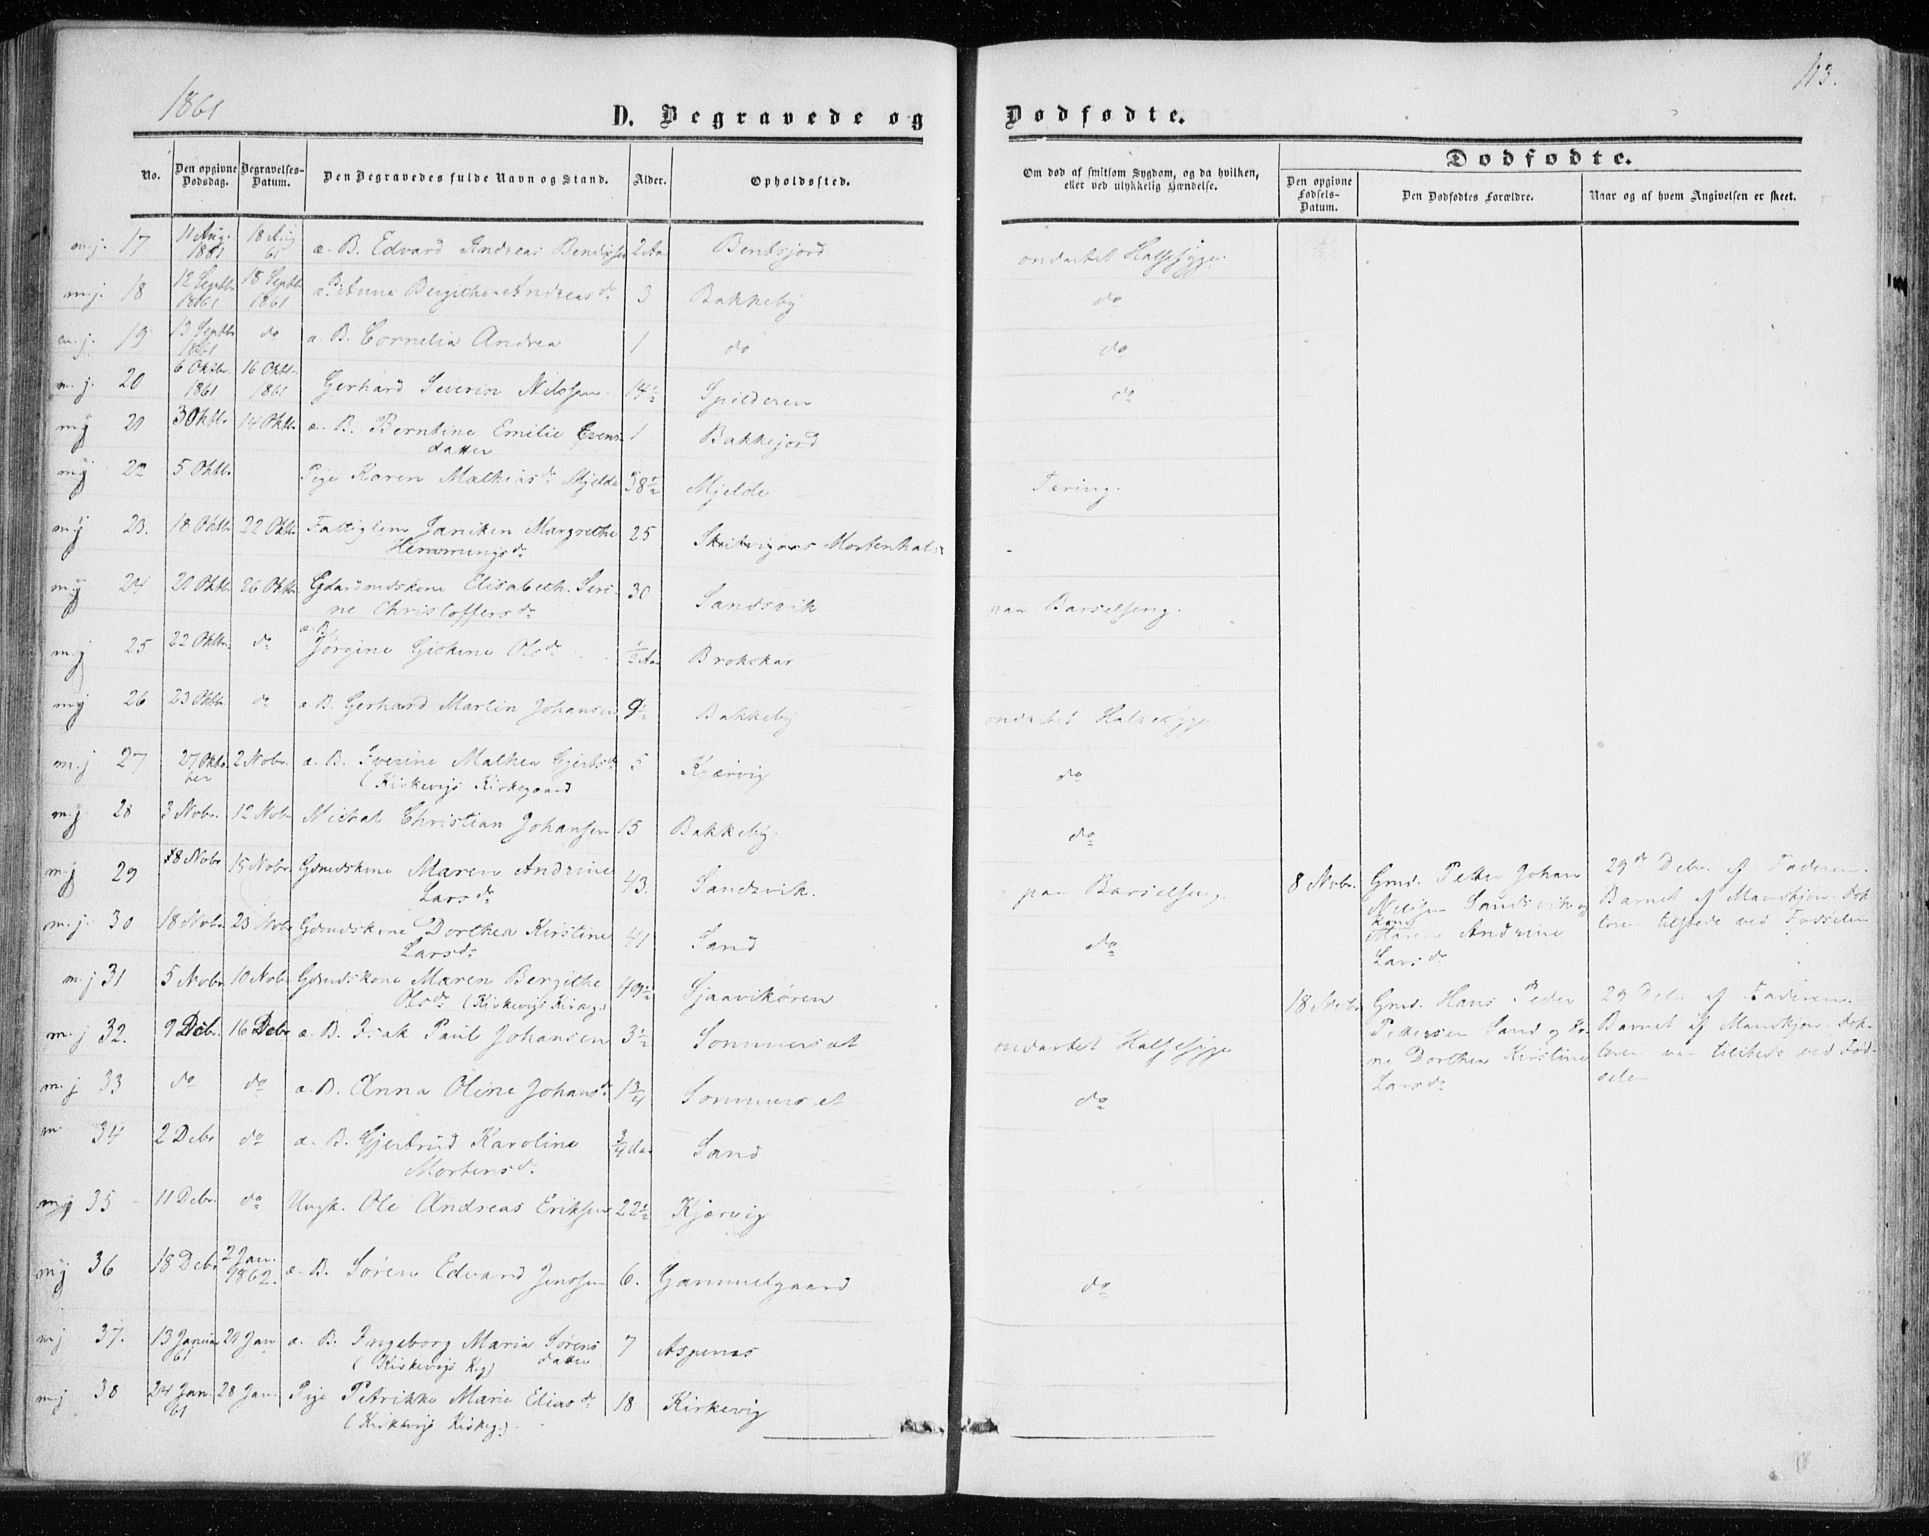 1861
113.
D. Begravede og Dødfødte.
No.
Den opgivne Dødsdag.
Begravelses-Datum.
Den Begravedes fulde Navn og Stand.
Alder.
Opholdssted.
Om død af smitsom Sygdom, og da hvilken, eller ved ulykkelig Hændelse.
Dødfødte.
Den opgivne Fødsels-Datum.
Den Dødfødtes Forældre.
Naar og af hvem Angivelsen er skeet.
m.j. 17 11 Aug. 1861 18 Aug 61 æ. B. Edvard Andreas Bendixsen 2 Aar Bentsjord ondartet Halssyge.
m.j. 18 12 Septbr 1861 18 Septbr 1861 æ. B. Anne Bergithe Andreasdr 3 Bakkeby do
m.j. 19 13 Septbr 1861 do æ. B. Cornelia Andrea 1 do do
m.j. 20 6 Oktbr. 1861 16 Oktbr. 1861 Gerhard Severin Nilssen 14½ Spilderen do
mj 21 3 Oktbr 14 Oktbr. æ. B. Berntine Emilie Evens-
datter 1 Bakkejord
mj 22 5 Oktbr. Pige Karen Mathiasdr Mjelde 38½ Mjelde Tæring.
mj 23. 18 Oktbr 22 Oktbr. Fattiglem Janiken Margrethe
Hemmingsdr 25 Mortenhals
mj 24 20 Oktbr. 26 Oktbr Gdmandskone Elisabeth Seri-
ne Christoffersdr 30 Sandsvik paa Barselseng.
mj 25 22 Oktbr. do æ. B.
Jørgine Gjskine Olsdr ½ Aar Brokskar
mj 26 23 Oktbr do æ B. Gerhard Martin Johansen 9½ Bakkeby ondartet Halssyge
m.j 27 27 Oktober 2 Nobr. æ. B. Iverine Mathea Gjertsdr 5 Kjærvig do
(Kirkevigs Kirkegaard
m.j. 28 3 Nobr. 12 Nobr Michal Christian Johansen 15 Bakkeby. do
mj 29 8 Nobr 15 Nobr Gdmdskone Maren Andrine
Larsdr 43. Sandsvik. paa Barselseng. 8 Nobr.
Gmd. Petter Johan
Nilsen Sandsvik og
Kone
Maren Andrine
Larsdr
29de Debr. af Faderen.
Barnet af Mandkjøn. Dok-
toren tilstede ved Fødselen
m.j. 30 18 Nobr. 23 Nobr Gdmdskone Dorthea Kirstine
Larsdr 41 Sand do
m.j 31 5 Nobr 10 Nobr Gdmdskone Maren Bergithe
Olsdr (Kirkevigs Kirkeg.) 49½ Sjaavikøren
18 Nobr.
Gmd. Hans Peder
Pettersen Sand og Ko-
ne Dorthea Kirstine
Larsdr
29 Debr. af Faderen.
Barnet af Mandkjøn. Dok-
toren var tilstede ved Fød-
selen
m.j 32. 9 Debr. 16 Debr æ. B. Isak Paul Johansen 3½ Sommersæt ondartet Halssyge
m.j 33 do do æ. B. Anna Oline Johansdr 1¾ Sommerset do
m. 34 2 Debr do æ. B. Gjertrud Karoline
Mortensdr ¾ Aar Sand
mj 35 11 Debr. do Ungk. Ole Andreas Eriksen 22½ Kjærvig
mj 36 18 Debr 2 Jan. 1862. æ. B. Søren Edvard Jenssen 6. Gammelgaard do
mj 37. 13 Januar 61 20 Jan æ. B. Ingeborg Maria Sørens
datter 7 Aspenes
(Kirkevigs Kg)
mj 38 24 Jan. 61 28 Jan. Pige Petrikke Marie Eliasdr 18 Kirkevig
(Kirkevigs Kirkeg.)